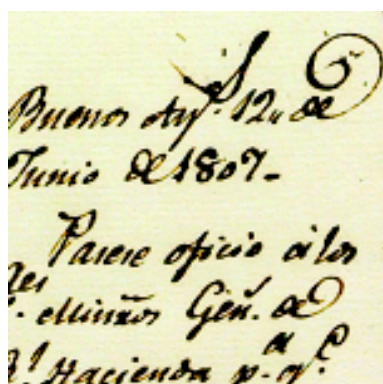 5
Buenos Ay.s 12,, de
Junio de 1807.
Pasese oficio á los
Minros Gen. de
Hacienda p.a q.e